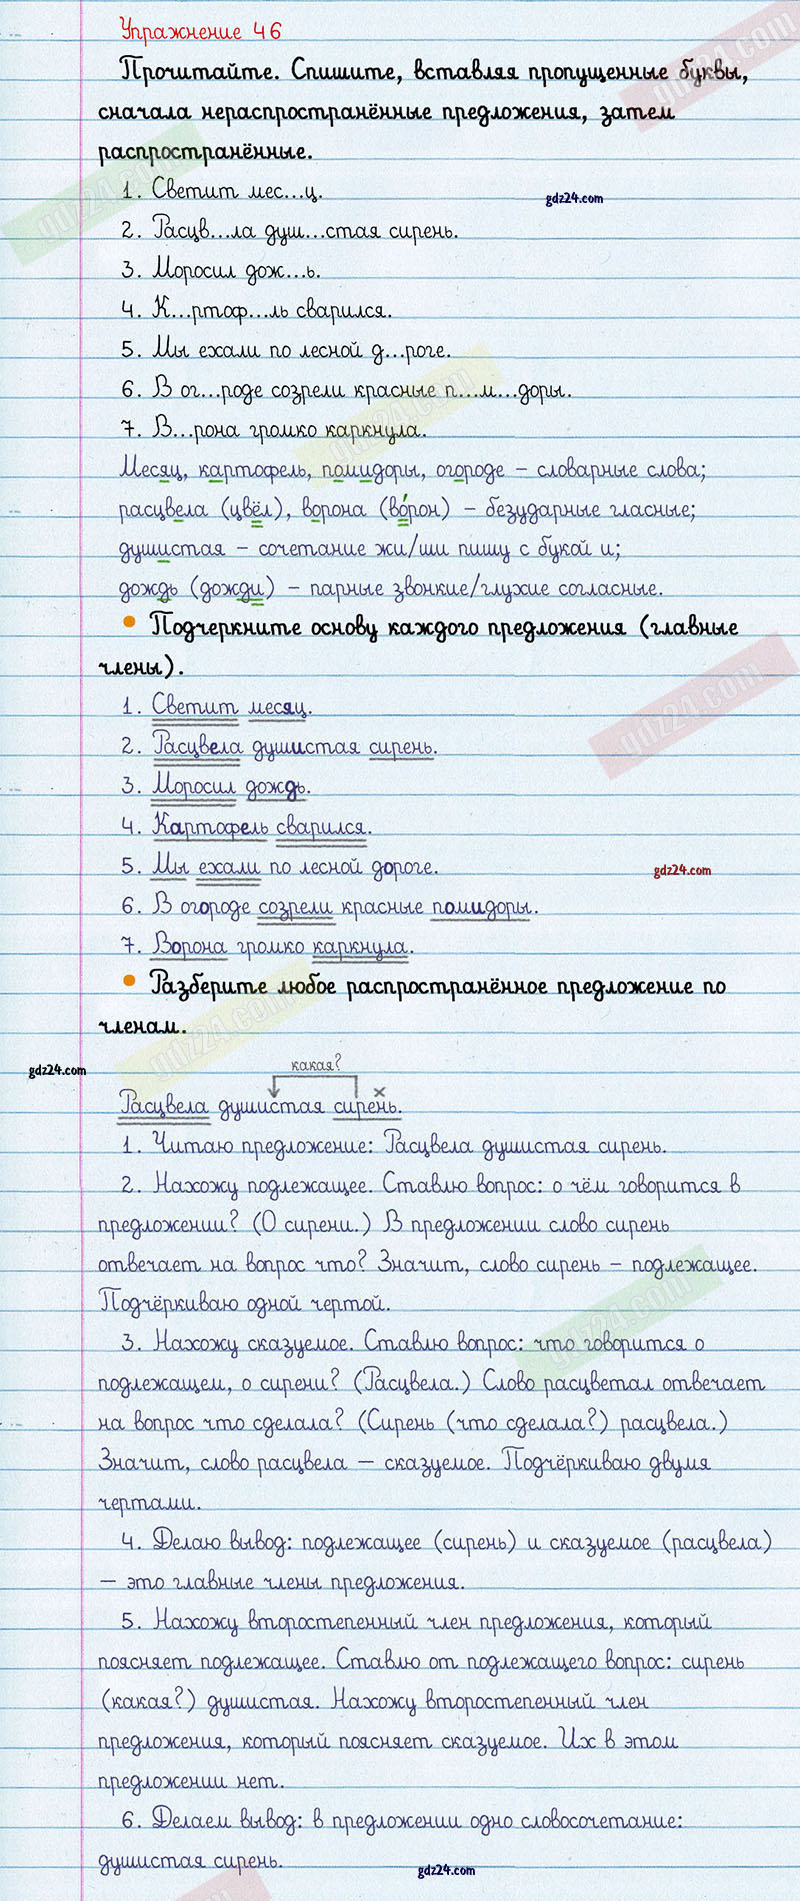 Упражнение 46
Прочитайте. Спишите, вставляя пропущенные буквы,
сначала нераспространённые предложения, затем
распространённые.
1. Светит мес...ц.
gdz24.com
2. Расцв...ла душ...стая сирень.
3. Моросил дож...ь.
4. К...ртоф...ль сварился.
5. Мы ехали по лесной д...роге.
6. В ог...роде созрели красные п...м...доры.
7. В...рона громко каркнула.
Месяц, картофель, помидоры, огороде – словарные слова;
расцвела (цвёл), ворона (во́рон) – безударные гласные;
душистая – сочетание жи/ши пишу с букой и;
дождь (дожди) – парные звонкие/глухие согласные.
Подчеркните основу каждого предложения (главные
члены).
1. Светит месяц.
2. Расцвела душистая сирень.
3. Моросил дождь.
4. Картофель сварился.
5. Мы ехали по лесной дороге.
gdz24.com
6. В огороде созрели красные помидоры.
7. Ворона громко каркнула.
Разберите любое распространённое предложение по
членам.
gdz24.com
какая?
×
Расцвела душистая сирень.
1. Читаю предложение: Расцвела душистая сирень.
2. Нахожу подлежащее. Ставлю вопрос: о чём говорится в
предложении? (О сирени.) В предложении слово сирень
отвечает на вопрос что? Значит, слово сирень – подлежащее.
Подчёркиваю одной чертой.
3. Нахожу сказуемое. Ставлю вопрос: что говорится о
подлежащем, о сирени? (Расцвела.) Слово расцветал отвечает
на вопрос что сделала? (Сирень (что сделала?) расцвела.)
Значит, слово расцвела – сказуемое. Подчёркиваю двумя
чертами.
4. Делаю вывод: подлежащее (сирень) и сказуемое (расцвела)
– это главные члены предложения.
5. Нахожу второстепенный член предложения, который
поясняет подлежащее. Ставлю от подлежащего вопрос: сирень
(какая?) душистая. Нахожу второстепенный член
предложения, который поясняет сказуемое. Их в этом
предложении нет.
6. Делаем вывод: в предложении одно словосочетание:
душистая сирень.
gdz24.com